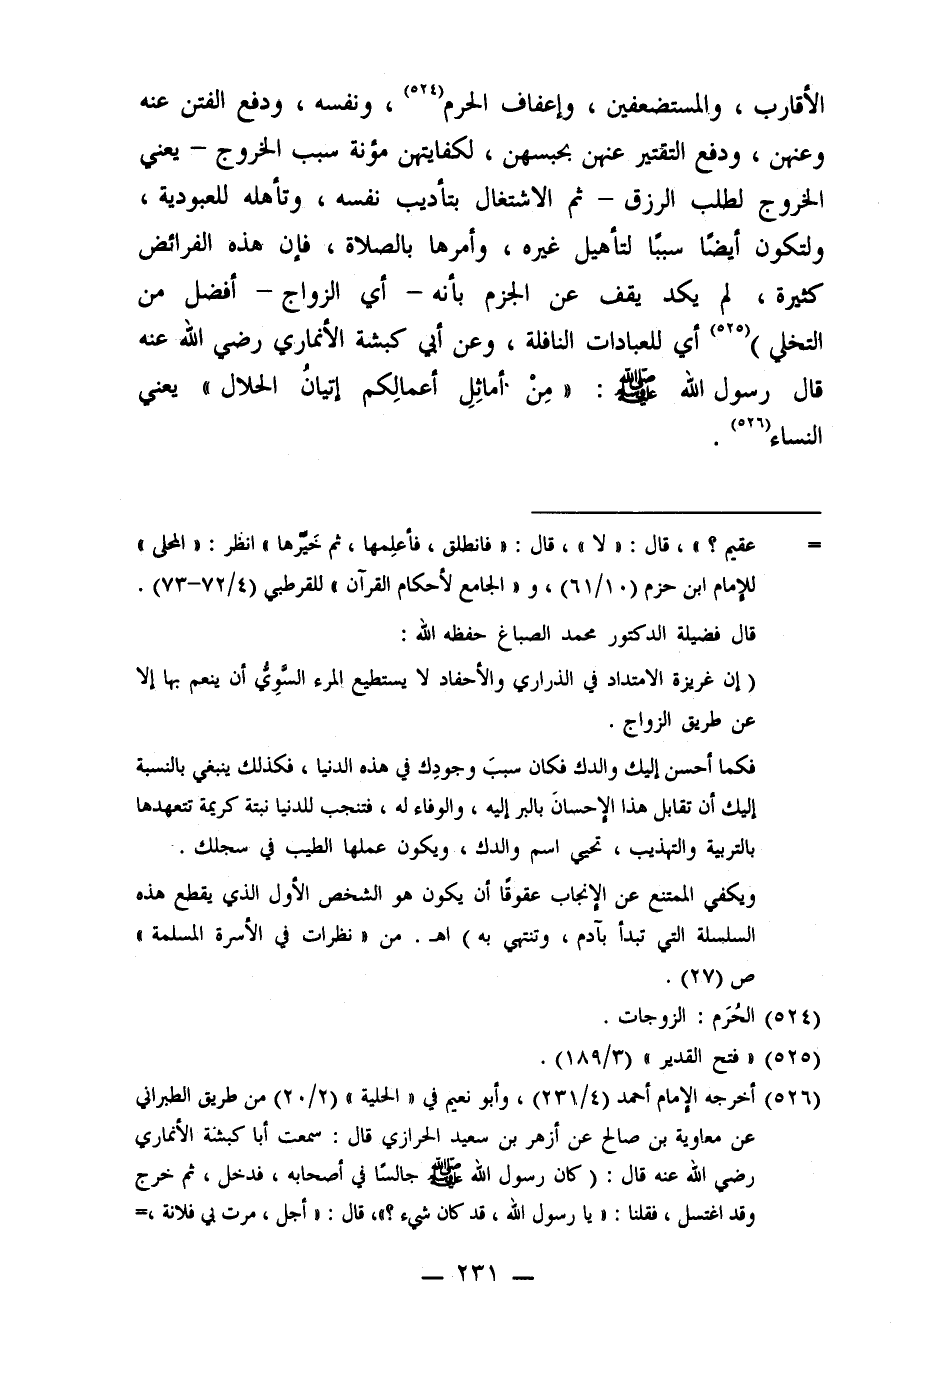 الأقارب ، والمستضعفين ، وإعفاف الحرم(٥٢٤) ، ونفسه ، ودفع الفتن عنه
وعنهن ، ودفع التقتير عنهن بحبسهن ، لكفايتهن مؤنة سبب الخروج – يعني
الخروج لطلب الرزق – ثم الاشتغال بتأديب نفسه ، وتأهله للعبودية ،
ولتكون أيضًا سببًا لتأهيل غيره ، وأمرها بالصلاة ، فإن هذه الفرائض
كثيرة ، لم يكد يقف عن الجزم بأنه – أي الزواج – أفضل من
التخلي )(٥٢٥) أي للعبادات النافلة ، وعن أبي كبشة الأنماري رضي الله عنه
قال رسول الله ﷺ : « مِنْ أماثِلِ أعمالِكم إتيانُ الحلال » يعني
النساء(٥٢٦) .
= عقيم ؟ » ، قال : « لا » ، قال : « فانطلق ، فأعلِمها ، ثم خَيِّرها » انظر : « المحلى »
للإمام ابن حزم (٦١/١٠) ، و « الجامع لأحكام القرآن » للقرطبي (٧٢/٤–٧٣) .
قال فضيلة الدكتور محمد الصباغ حفظه الله :
( إن غريزة الامتداد في الذراري والأحفاد لا يستطيع المرء السَّوِيُّ أن ينعم بها إلا
عن طريق الزواج .
فكما أحسن إليك والدك فكان سببَ وجودِك في هذه الدنيا ، فكذلك ينبغي بالنسبة
إليك أن تقابل هذا الإحسانَ بالبر إليه ، والوفاء له ، فتنجب للدنيا نبتة كريمة تتعهدها
بالتربية والتهذيب ، تحيي اسم والدك ، ويكون عملها الطيب في سجلك .
ويكفي الممتنع عن الإنجاب عقوقًا أن يكون هو الشخص الأول الذي يقطع هذه
السلسلة التي تبدأ بآدم ، وتنتهي به ) اهـ . من « نظرات في الأسرة المسلمة »
ص (٢٧) .
(٥٢٤) الحُرَم : الزوجات .
(٥٢٥) « فتح القدير » (١٨٩/٣) .
(٥٢٦) أخرجه الإمام أحمد (٢٣١/٤) ، وأبو نعيم في « الحلية » (٢٠/٢) من طريق الطبراني
عن معاوية بن صالح عن أزهر بن سعيد الحرازي قال : سمعت أبا كبشة الأنماري
رضي الله عنه قال : ( كان رسول الله ﷺ جالسًا في أصحابه ، فدخل ، ثم خرج
وقد اغتسل ، فقلنا : « يا رسول الله ، قد كان شيء ؟»، قال : « أجل ، مرت بي فلانة ،=
— ٢٣١ —